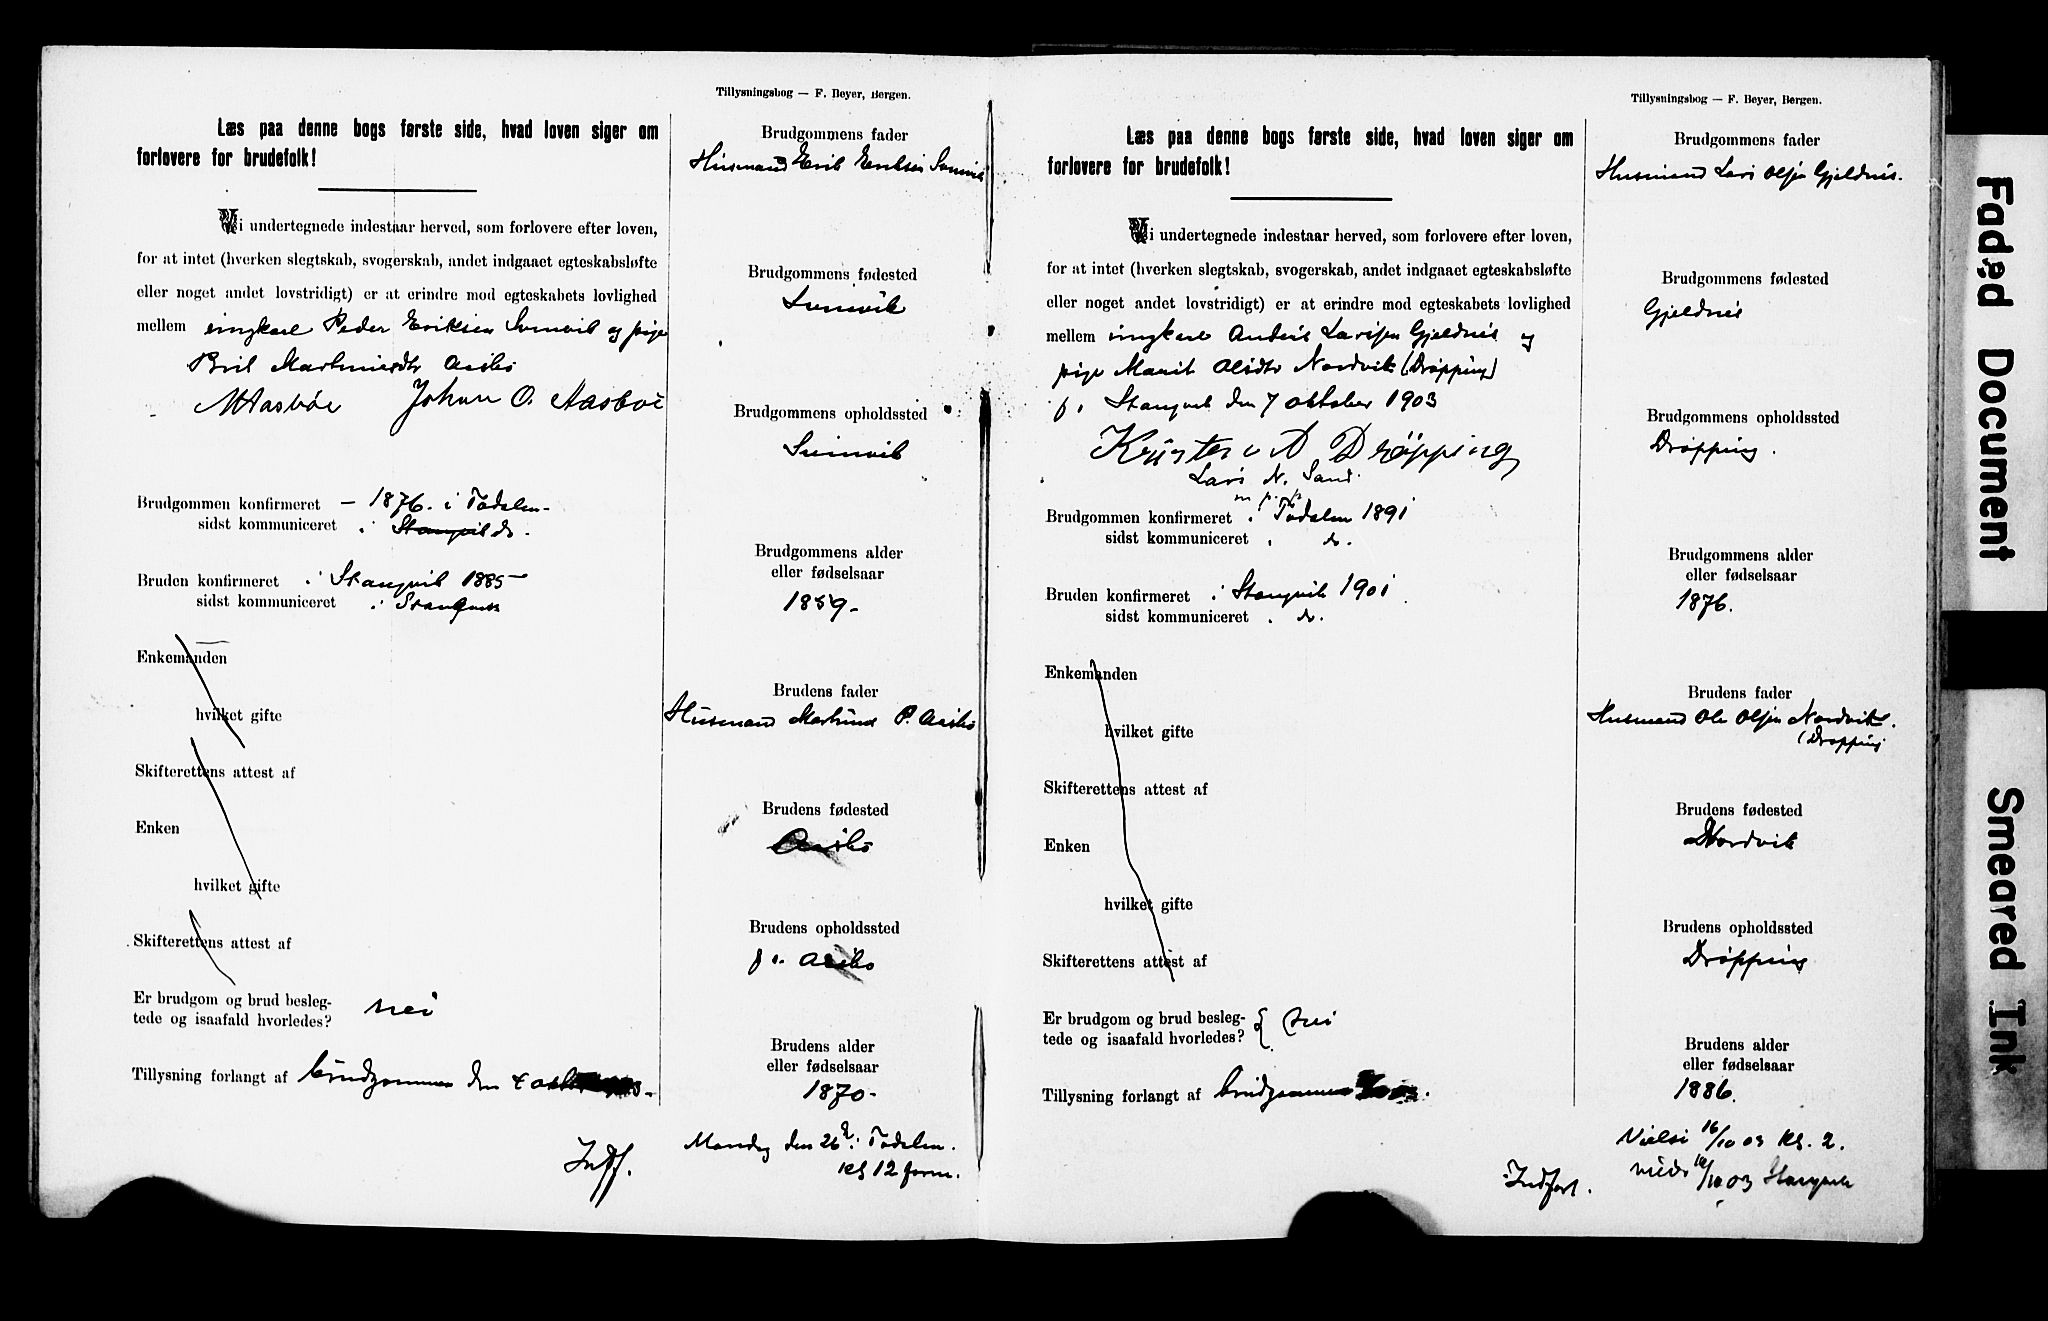 Tillysningsbog — F. Beyer, Bergen.
Læs paa denne bogs første side, hvad loven siger om
forlovere for brudefolk!
Vi undertegnede indestaar herved, som forlovere efter loven,
for at intet (hverken slegtskab, svogerskab, andet indgaaet egteskabsløfte
eller noget andet lovstridigt) er at erindre mod egteskabets lovlighed
mellem ungkarl Peder Eriksen Svinvik og pige
Aasbø
Aasbøe Johan O. Aasboe
Brudgommen konfirmeret – 1876. i Tødalen –
sidst kommuniceret i Stangvik do.
Bruden konfirmeret i Stangvik 1885 –
sidst kommuniceret i Stangvik
Enkemanden
hvilket gifte
Skifterettens attest af
Enken
hvilket gifte
Skifterettens attest af
Er brudgom og brud besleg-
tede og isaafald hvorledes? nei
Tillysning forlangt af brudgommen den
Indf.
Brudgommens fader
Husmand Erik Eriksen Svinvik
Brudgommens fødested
Svinvik
Brudgommens opholdssted
Svinvik
Brudgommens alder
eller fødselsaar
1859 –
Brudens fader
Husmand P. Aasbø
Brudens fødested
Aasbø
Brudens opholdssted
Aasbø
Brudens alder
eller fødselsaar
1870 –
Mandag den 26 i Tødalen.
Kl 12 form.
Tillysningsbog — F. Beyer, Bergen.
Læs paa denne bogs første side, hvad loven siger om
forlovere for brudefolk!
Vi undertegnede indestaar herved, som forlovere efter loven,
for at intet (hverken slegtskab, svogerskab, andet indgaaet egteskabsløfte
eller noget andet lovstridigt) er at erindre mod egteskabets lovlighed
mellem ungkarl Anders Larsen Gjeldnes og
pige Marit Olsdtr Nordvik (Drøpping)
p. t. Stangvik den 7 oktober 1903
Krister A Drøpping
Lars N. Sand
m p. p.
Brudgommen konfirmeret i Tødalen 1891
sidst kommuniceret i do.
Bruden konfirmeret i Stangvik 1901
sidst kommuniceret i do.
Enkemanden
hvilket gifte
Skifterettens attest af
Enken
hvilket gifte
Skifterettens attest af
Er brudgom og brud besleg-
tede og isaafald hvorledes? { nei
Tillysning forlangt af brudgommen
Indført.
Brudgommens fader
Husmand Lars Olsen Gjeldnes.
Brudgommens fødested
Gjeldnes
Brudgommens opholdssted
Drøpping.
Brudgommens alder
eller fødselsaar
1876.
Brudens fader
Husmand Ole Olsen Nordvik.
(Drøpping
Brudens fødested
Nordvik
Brudens opholdssted
Drøpping
Brudens alder
eller fødselsaar
1886.
Vielse 16/10 03 Kl. 2.
/10 03 Stangvik
Faded Document
Smeared Ink